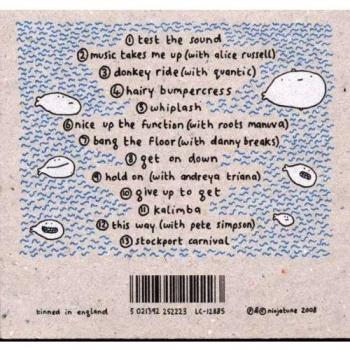 ① test the sound
② music takes me up (with alice russell)
③ donkey ride (with quantic)
④ hairy bumpercress
⑤ whiplash
⑥ nice up the function (with roots manuva)
⑦ bang the floor (with danny breaks)
⑧ get on down
⑨ hold on (with andreya triana)
⑩ give up to get
⑪ kalimba
⑫ this way (with pete simpson)
⑬ stockport carnival
tinned in england
5 021392 252223 LC-12885
℗&© ninjatune 2008